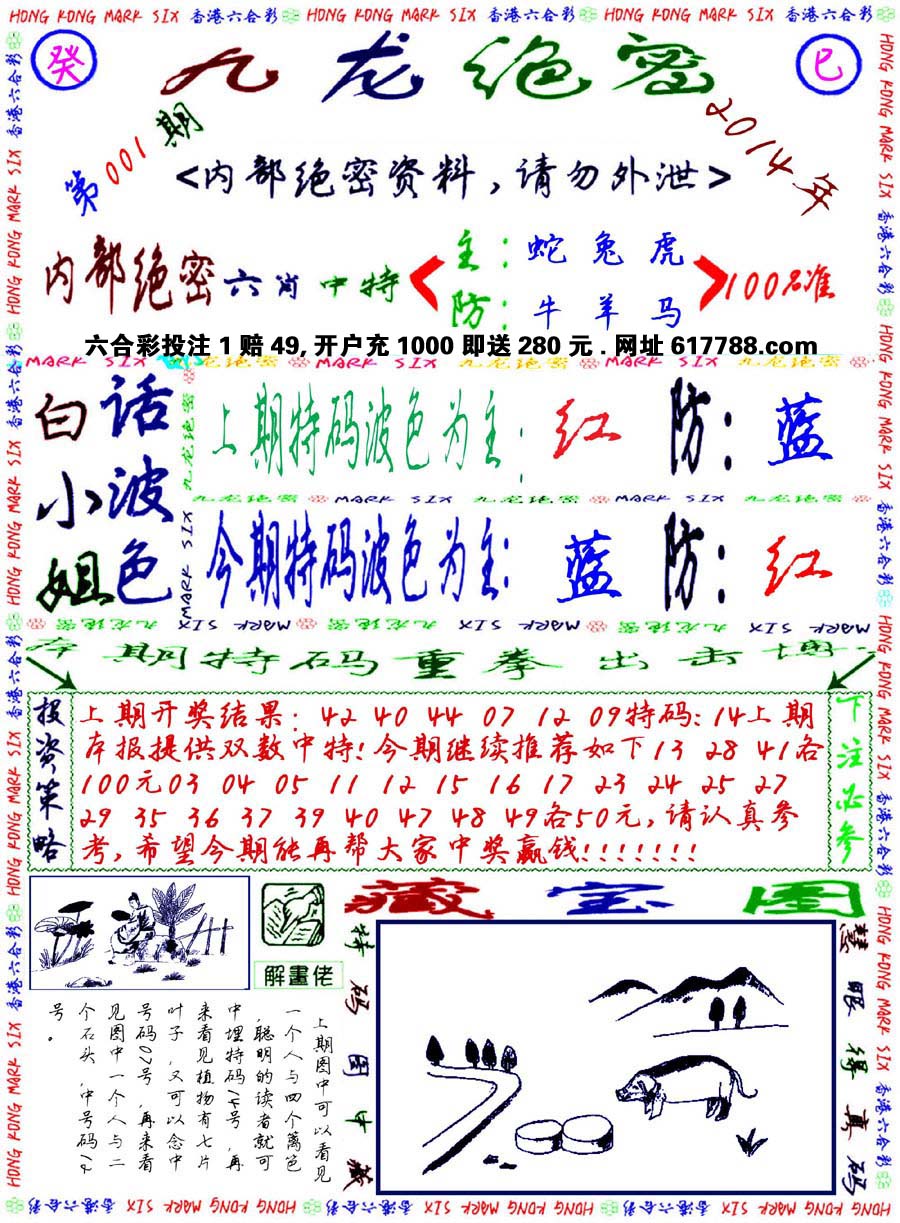 HONG KONG MARK SIX 香港六合彩 HONG KONG MARK SIX 香港六合彩 HONG KONG MARK SIX 香港六合彩
癸 九龙绝密 巳
第001期 2014年
<内部绝密资料,请勿外泄>
内部绝密六肖中特
主:蛇兔虎
防:牛羊马
100%准
六合彩投注1赔49,开户充1000即送280元.网址617788.com
MARK SIX 九龙绝密 MARK SIX 九龙绝密 MARK SIX 九龙绝密
白小姐
话波色
上期特码波色为主:红 防:蓝
九龙绝密 MARK SIX 九龙绝密 MARK SIX 九龙绝密
今期特码波色为主:蓝 防:红
九龙绝密 MARK SIX 九龙绝密 MARK SIX 九龙绝密 MARK SIX
本期特码重拳出击博
投资策略
上期开奖结果:42 40 44 07 12 09特码:14上期
本报提供双数中特!今期继续推荐如下13 28 41各
100元03 04 05 11 12 15 16 17 23 24 25 27
29 35 36 37 39 40 47 48 49各50元,请认真参
考,希望今期能再帮大家中奖赢钱!!!!!!!
下注必参
藏宝图
解畫佬
特码图中藏
慧眼得真码
上期图中可以看见
一个人与四个篱笆
,聪明的读者就可
中埋特码14号,再
来看见植物有七片
叶子,又可以念中
号码07号,再来看
见图中一个人与二
个石头,中号码12
号。
HONG KONG MARK SIX 香港六合彩 HONG KONG MARK SIX 香港六合彩 HONG KONG MARK SIX 香港六合彩